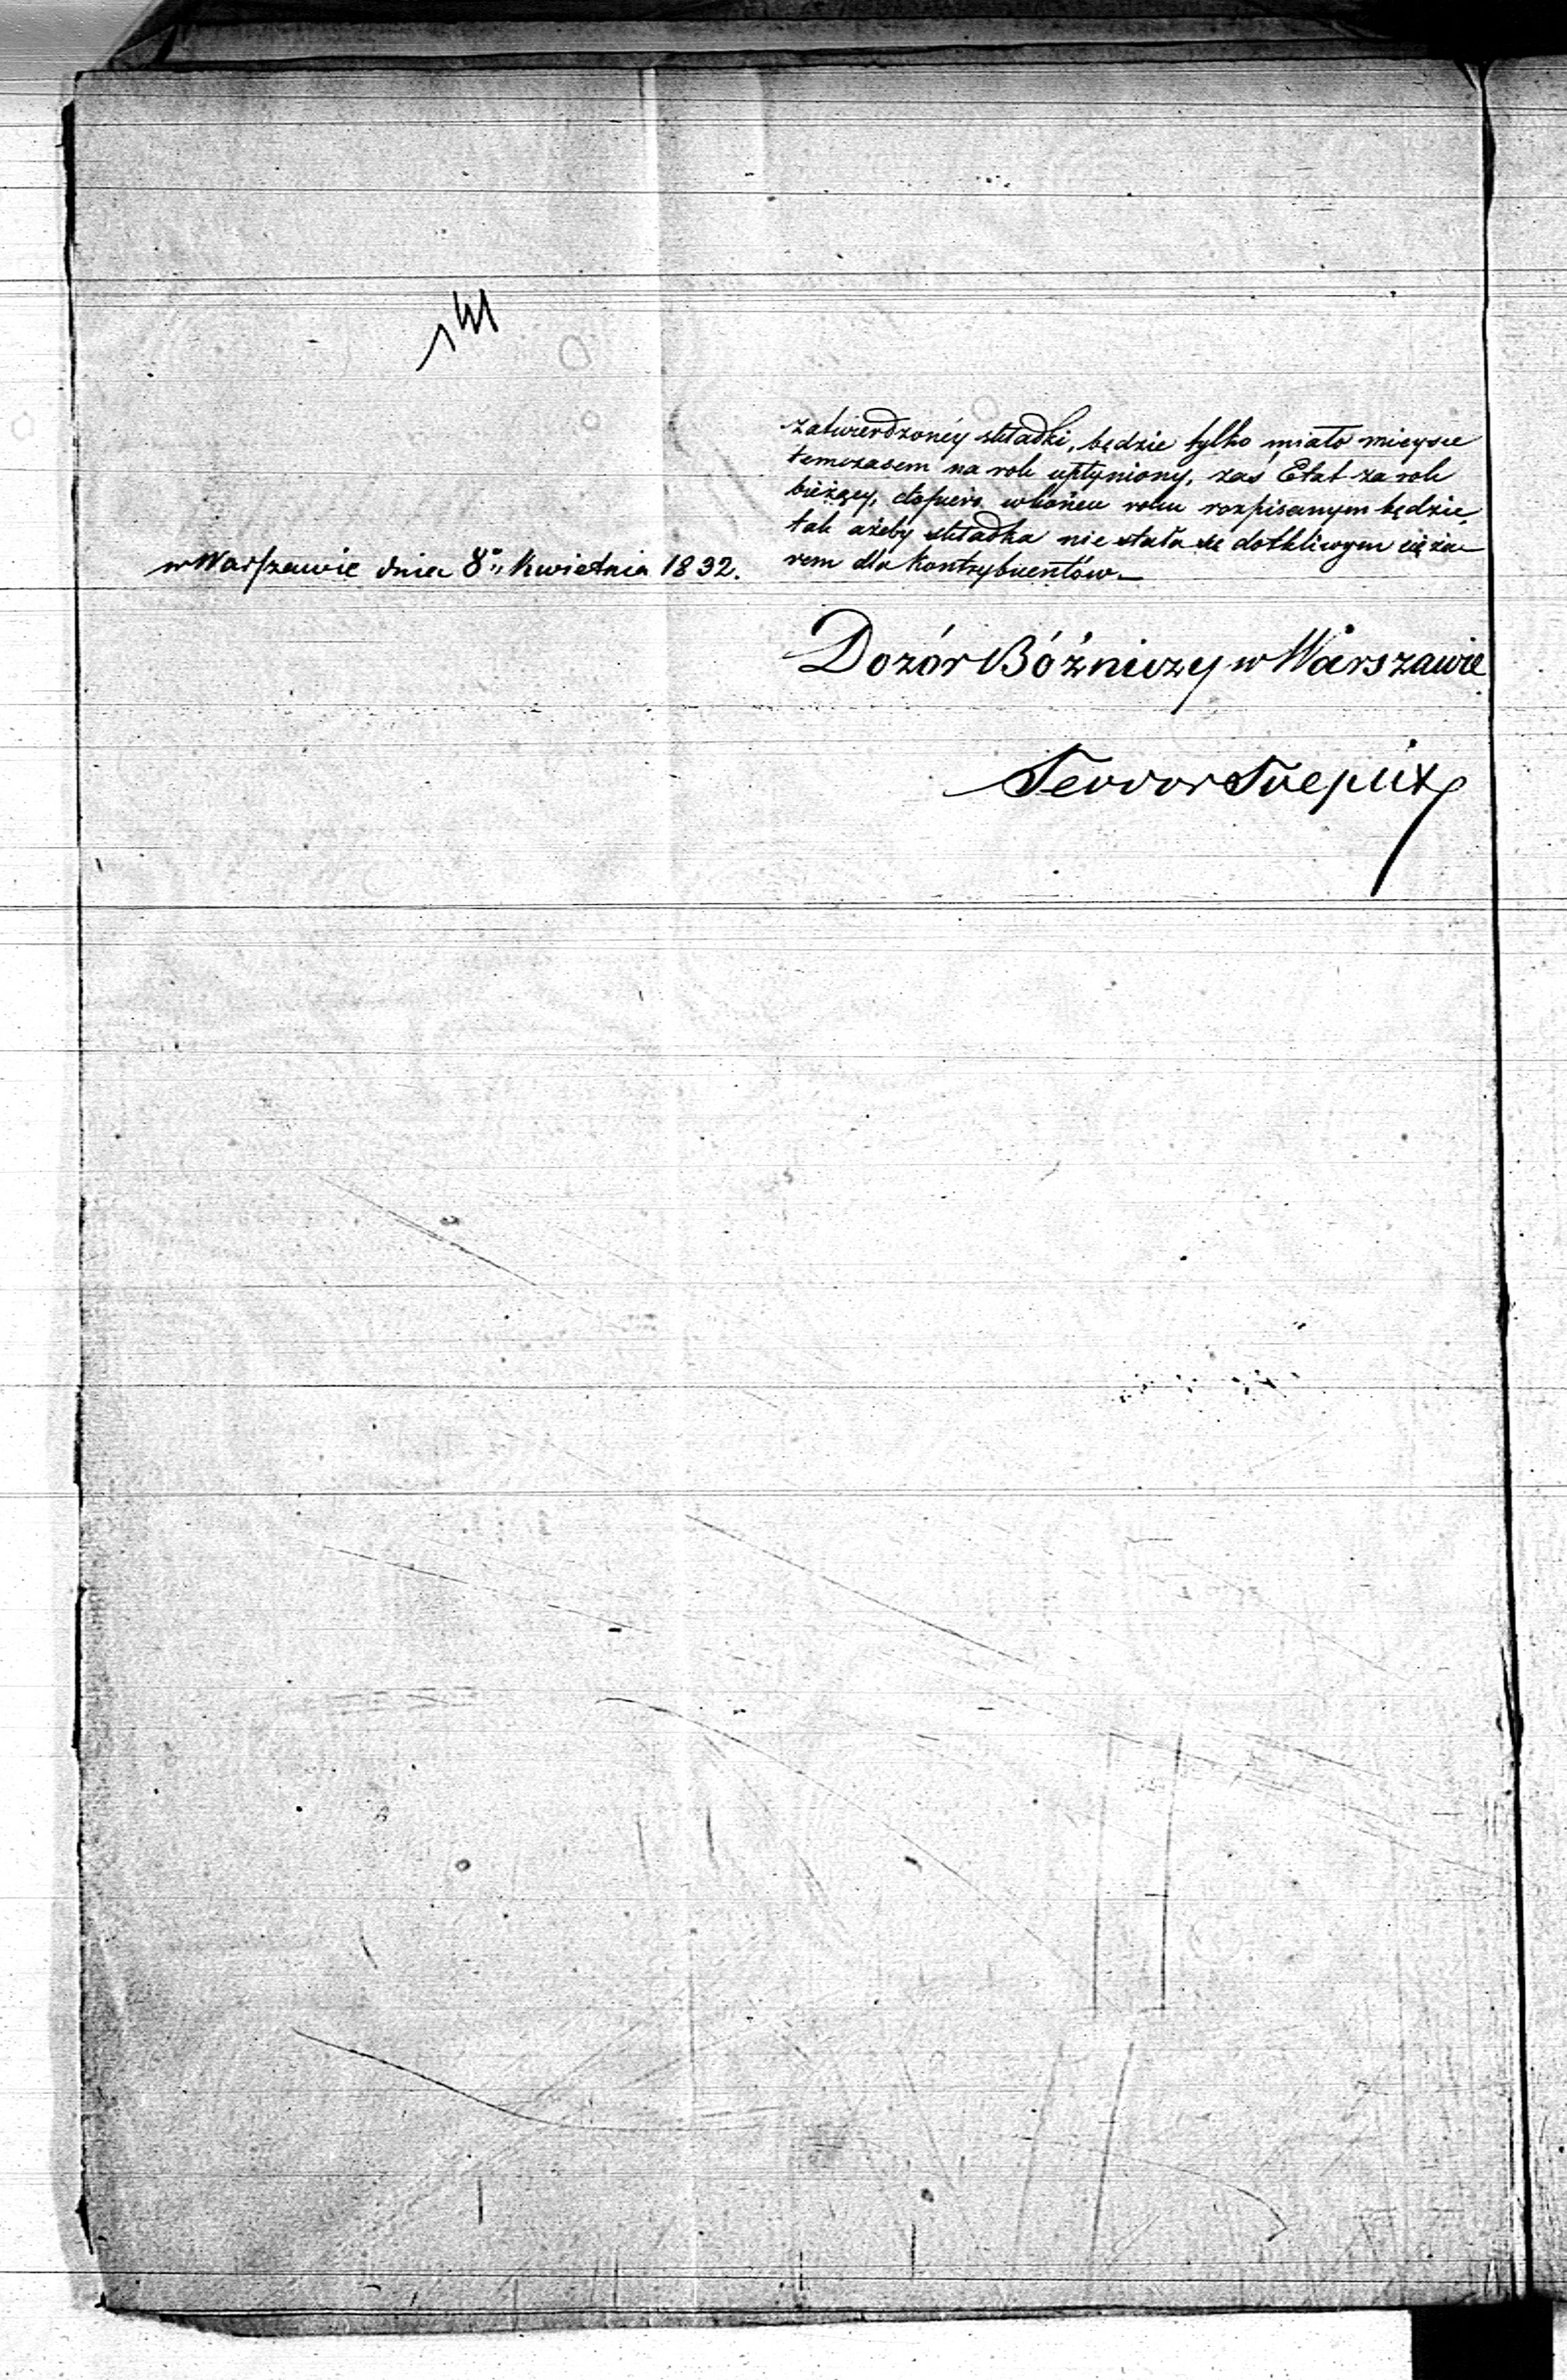 zatwierdzoney składki, będzie tylko miało mieysce
temczasem na rok upłyniony, zaś Etat za rok
bieżący, dopiero w końcu roku rozpisanym będzie,
tak ażeby składka nie stała się dotkliwym cięża-
rem dla kontrybuentów.—
w Warszawie dnia 8" Kwietnia 1832.
Dozór Bóżniczy w Warszawie
Teodor